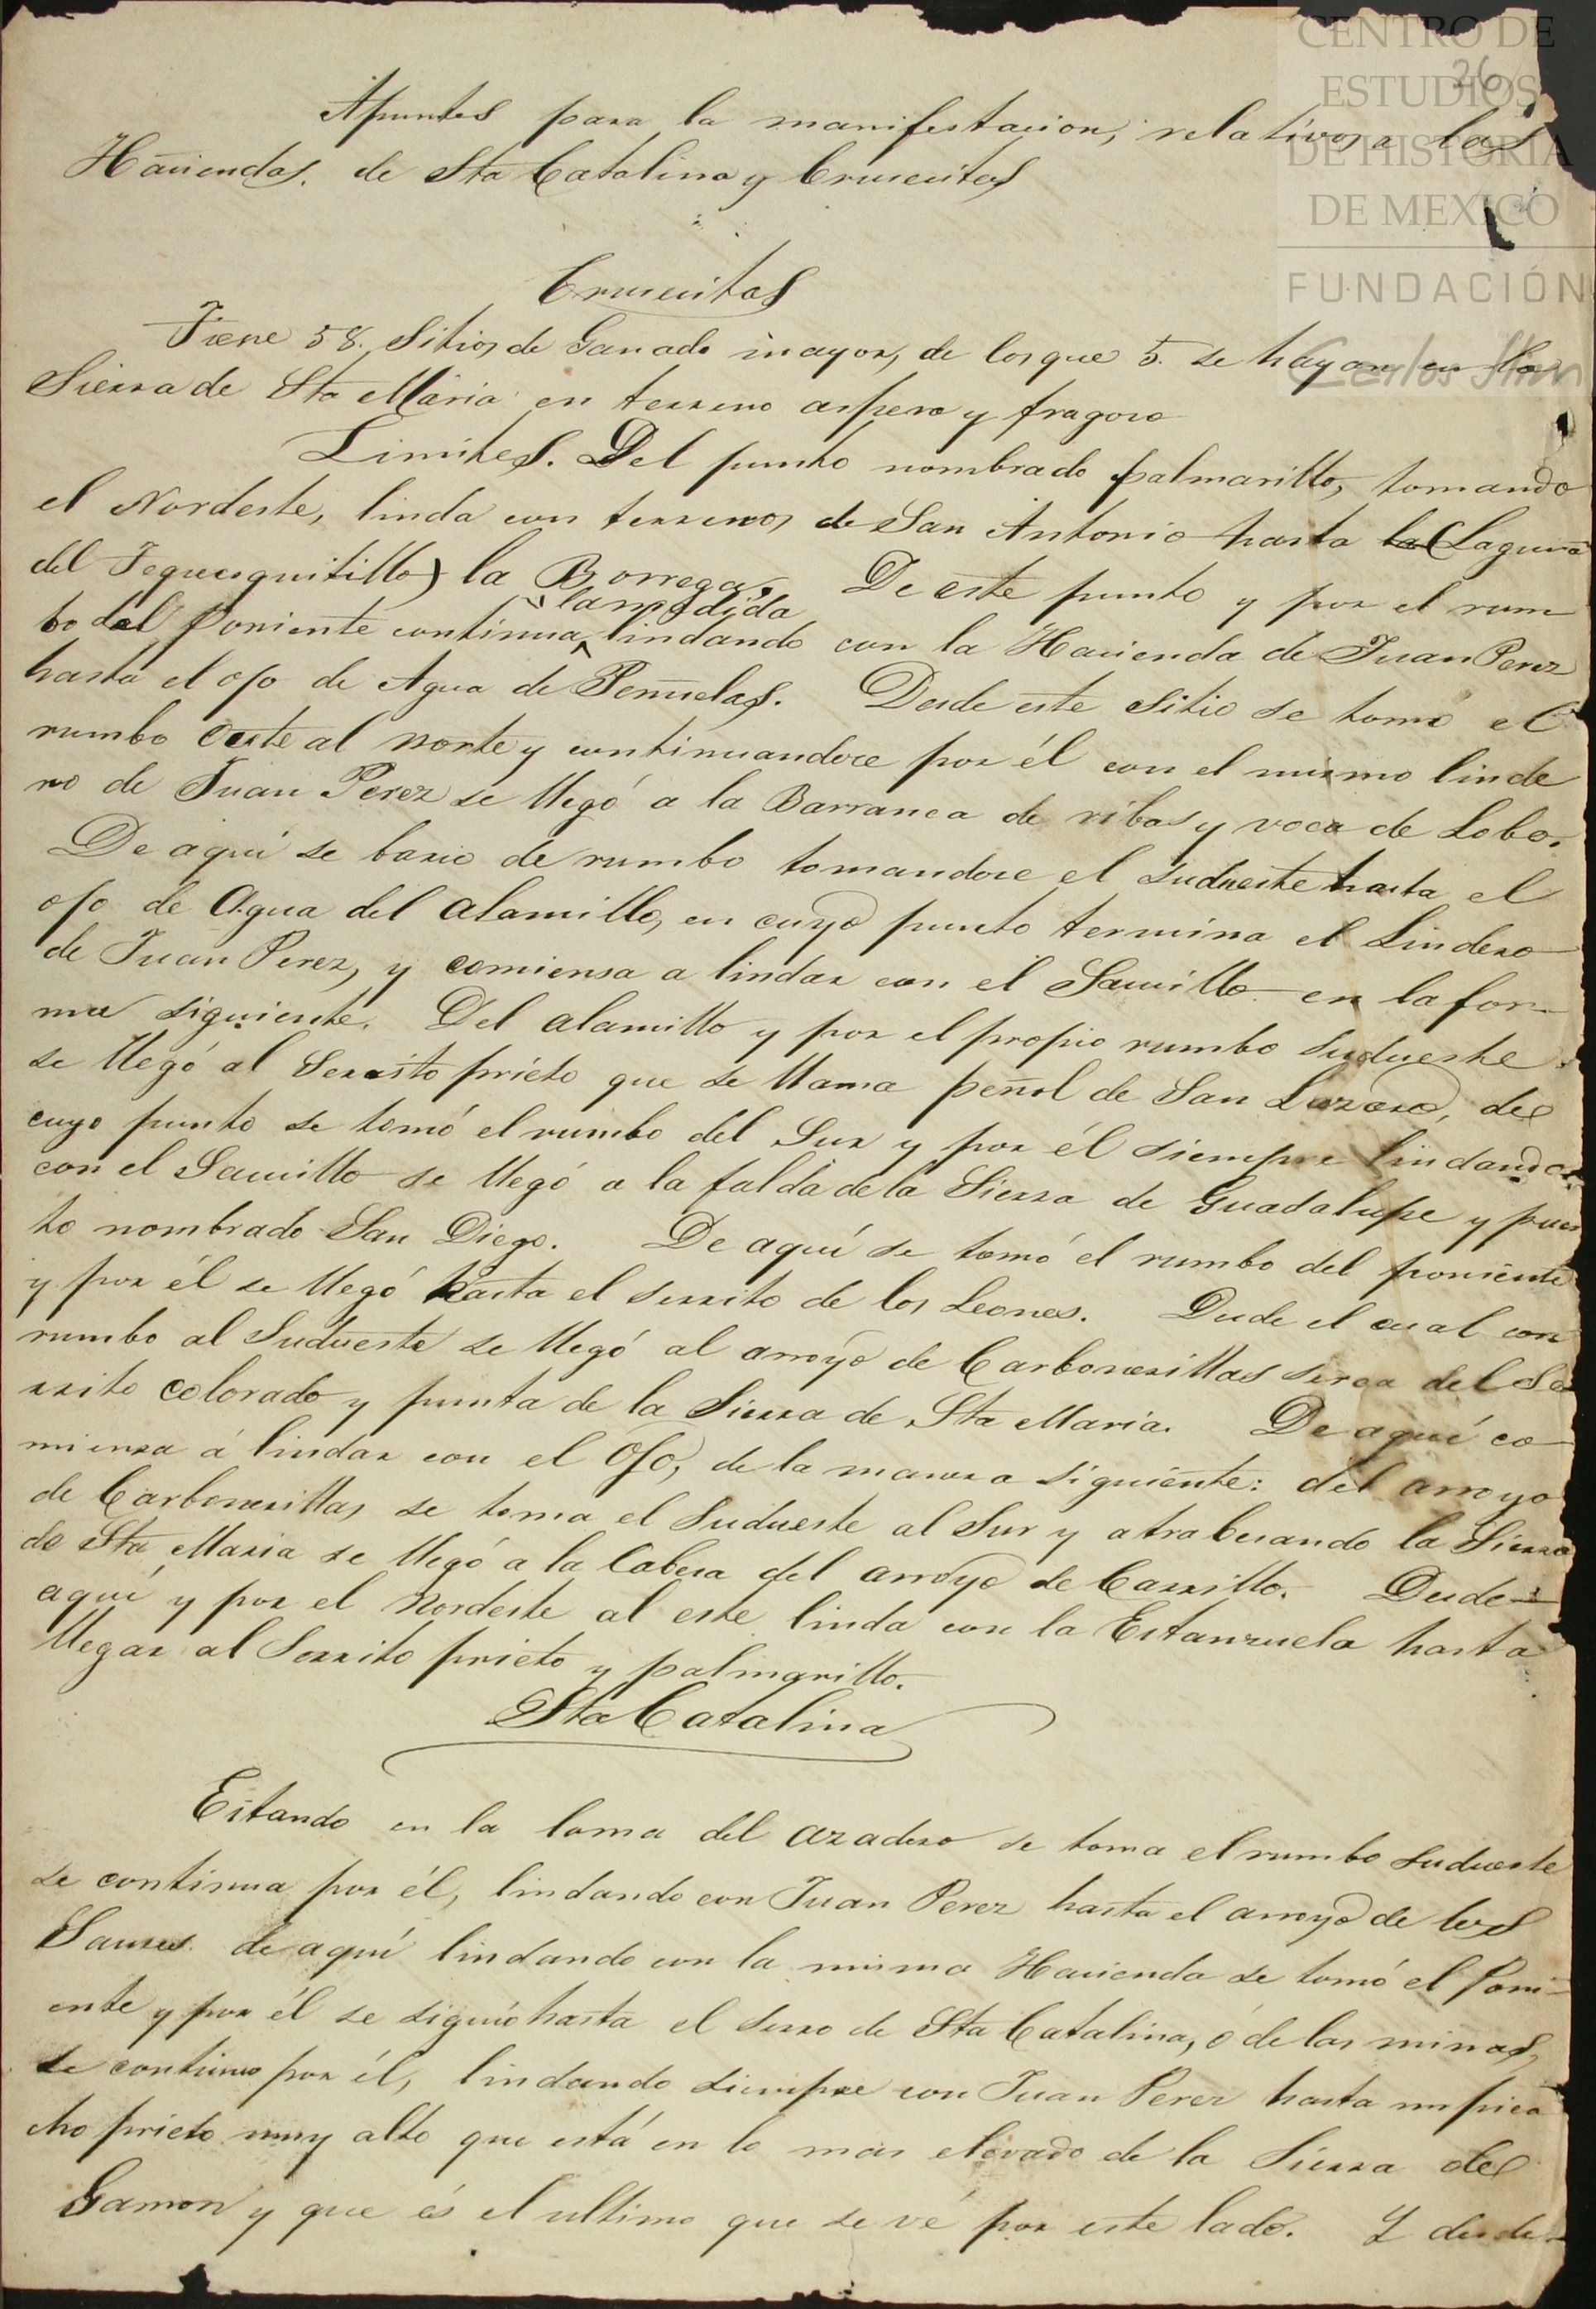 CENTRO DE
ESTUDIOS
DE HISTORIA
DE MEXICO
FUNDACIÓN
Carlos Slim
26
Apuntes para la manifestacion, relativos a las
Haciendas. de Sta Catalina y Crucecitas
Crucecitas
Tiene 58. Sitios de Ganado mayor, de los que 5. se hayan en la
Sierra de Sta Maria en terreno aspero y fragoso
Limites. Del punto nombrado palmarillo, tomando
el Nordeste, linda con terrenos de San Antonio hasta la (Laguna
del Tequesquitillo) la Borrega. De este punto y por el rum
la medida
bo del Poniente continua lindando con la Hacienda de Juan Perez
hasta el ojo de Agua de Peñuelas. Desde este sitio se tomó el
rumbo Oeste al norte y continuandose por él con el mismo linde
ro de Juan Perez se llegó a la Barranca de ribas y voca de Lobo.
De aquí se bario de rumbo tomandose el sudueste hasta el
ojo de Agua del Alamillo, en cuyo punto termina el Lindero
de Juan Perez, y comiensa a lindar con el Saucillo en la for-
ma siguiente. Del alamillo y por el propio rumbo sudueste
se llegó al Serrito prieto que se llama peñol de San Lazaro, de
cuyo punto se tomó el rumbo del Sur y por él siempre lindando
con el Saucillo se llegó a la falda de la Sierra de Guadalupe y puer
to nombrado San Diego. De aquí se tomó el rumbo del poniente
y por él se llegó hasta el serrito de los Leones. Desde el cual con
rumbo al Sudueste se llegó al arroyo de Carbonerillas serca del Se
rrito colorado y punta de la Sierra de Sta Maria. De aquí co
miensa á lindar con el Ojo, de la manera siguiente: del arroyo
de Carbonerillas se toma el Sudueste al Sur y atrabesando la Sierra
de Sta Maria se llegó a la Cabesa del arroyo de Carrillo. Desde
aquí y por el Nordeste al este linda con la Estanzuela hasta
llegar al Serrito prieto y palmarillo.
Sta Catalina
Estando en la loma del azadero se toma el rumbo sudueste
se continua por él, lindando con Juan Perez hasta el arroyo de los
Sauses. de aquí lindando con la misma Hacienda se tomó el Poni-
ente y por él se siguió hasta el serro de Sta Catalina, ó de las minas,
se continuo por él, lindando siempre con Juan Perez hasta un pica
cho prieto muy alto que está en lo mas elevado de la Sierra del
Gamon y que es el ultimo que se vé por este lado. Y desde